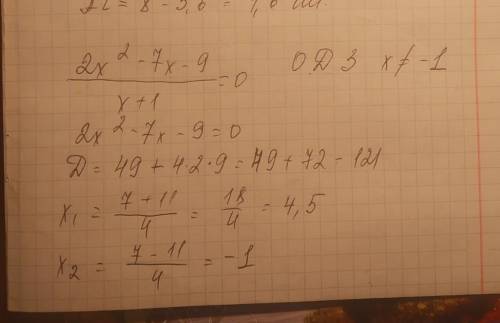 = 8 - 3,6 = 4,6
(2x² - 7x - 9)/(x + 1) = 0 ОДЗ x ≠ -1
2x² - 7x - 9 = 0
D = 49 + 4·2·9 = 49 + 72 - 121
x₁ = (7 + 11)/4 = 18/4 = 4,5
x₂ = (7 - 11)/4 = -1